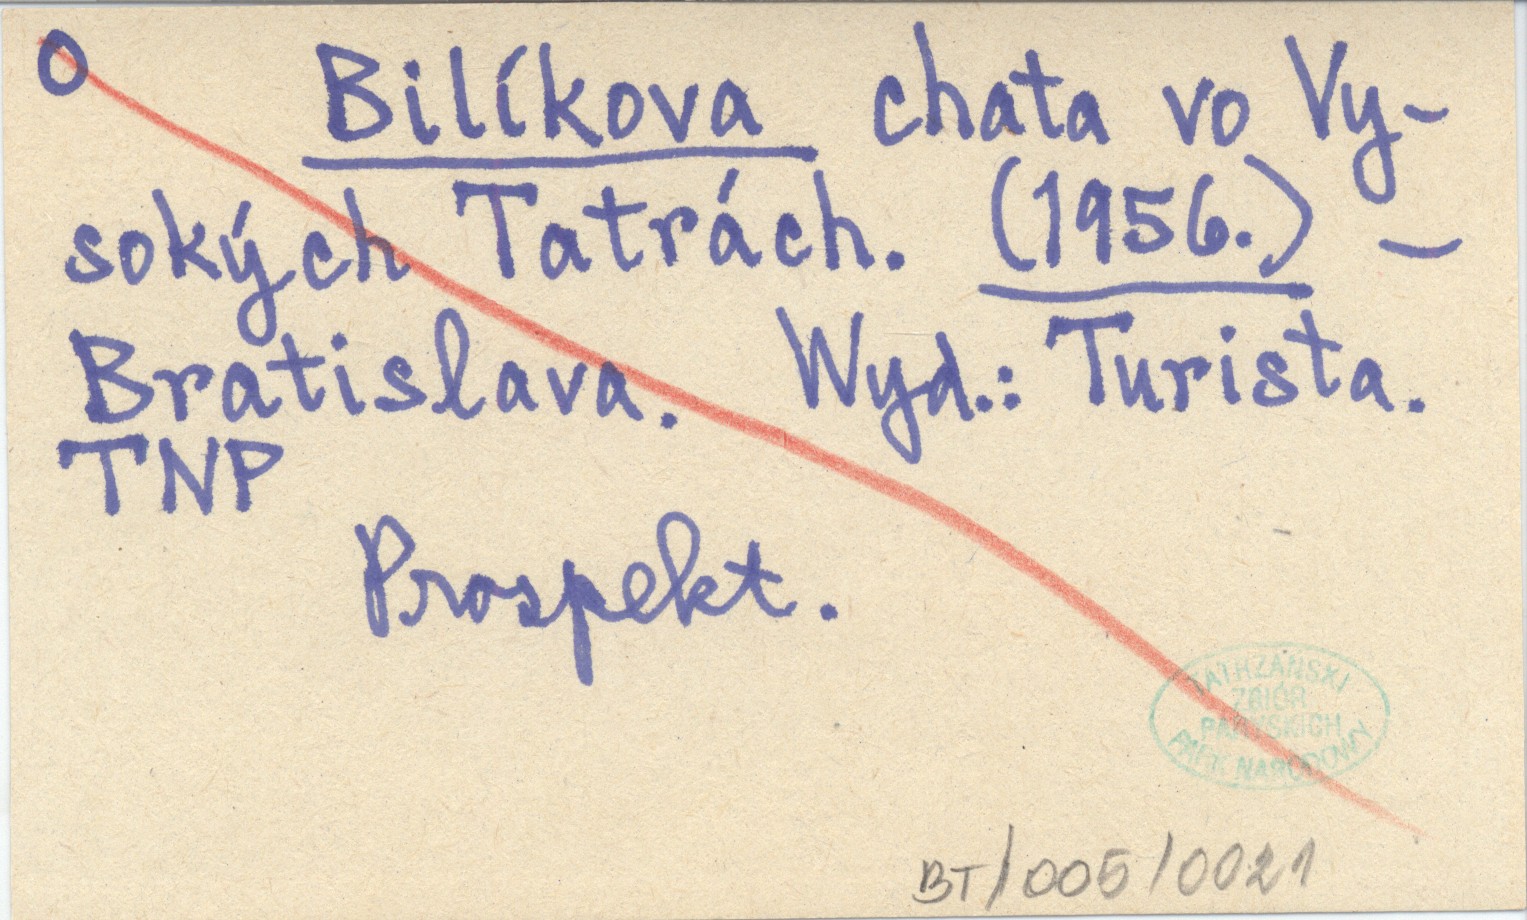 O Bilíkova chata vo Vy-
sokých Tatrách. (1956.) –
Bratislava. Wyd.: Turista.
TNP
Prospekt.
TATRZAŃSKI
ZBIÓR
PARYSKICH
PARK NARODOWY
BT/005/0021